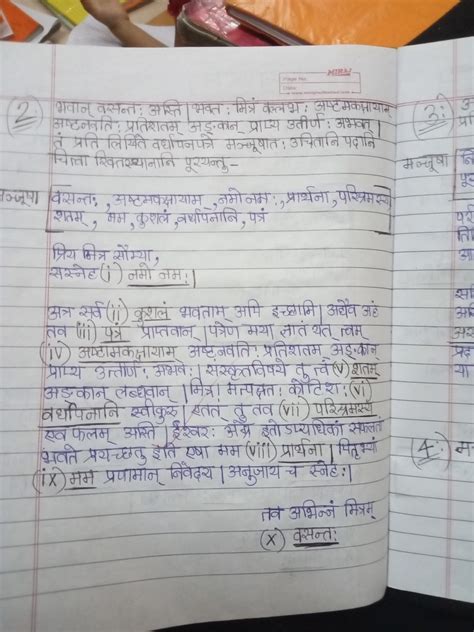 Page No.
Date
2
भवान् वसन्तः अस्ति। भवतः मित्रं वल्लभः अष्टमकक्षायाम्
अष्टनवतिः प्रतिशतम् अङ्कान् प्राप्य उत्तीर्णः अभवत्।
तं प्रति लिखिते वर्धापनपत्रे मञ्जूषातः उचितानि पदानि
चित्वा रिक्तस्थानानि पूरयन्तु-
मञ्जूषा
वसन्तः, अष्टमकक्षायाम्, नमो नमः, प्रार्थना, परिश्रमस्य
शतम्, मम, कुशलं, वर्धापनानि, पत्रं
प्रिय मित्र सौम्या,
सस्नेह (i) नमो नमः।
अत्र सर्वं (ii) कुशलं भवताम् अपि इच्छामि। अद्यैव अहं
तव (iii) पत्रं प्राप्तवान्। पत्रेण मया ज्ञातं यत् त्वम्
(iv) अष्टमकक्षायाम् अष्टनवतिः प्रतिशतम् अङ्कान्
प्राप्य उत्तीर्णः अभवः। संस्कृतविषये तु त्वं (v) शतम्
अङ्कान् लब्धवान्। मित्र। मत्पक्षतः कोटिशः (vi)
वर्धापनानि स्वीकुरु। एतत् तु तव (vii) परिश्रमस्य
एव फलम् अस्ति। ईश्वरः अग्रे इतोऽप्यधिकां सफलतां
भवते प्रयच्छतु इति एषा मम (viii) प्रार्थना। पितृभ्यां
(ix) मम प्रणामान् निवेदय। अनुजाय च स्नेहः।
तव अभिन्नं मित्रम्
(x) वसन्तः
3:
मञ्जूषा
4: